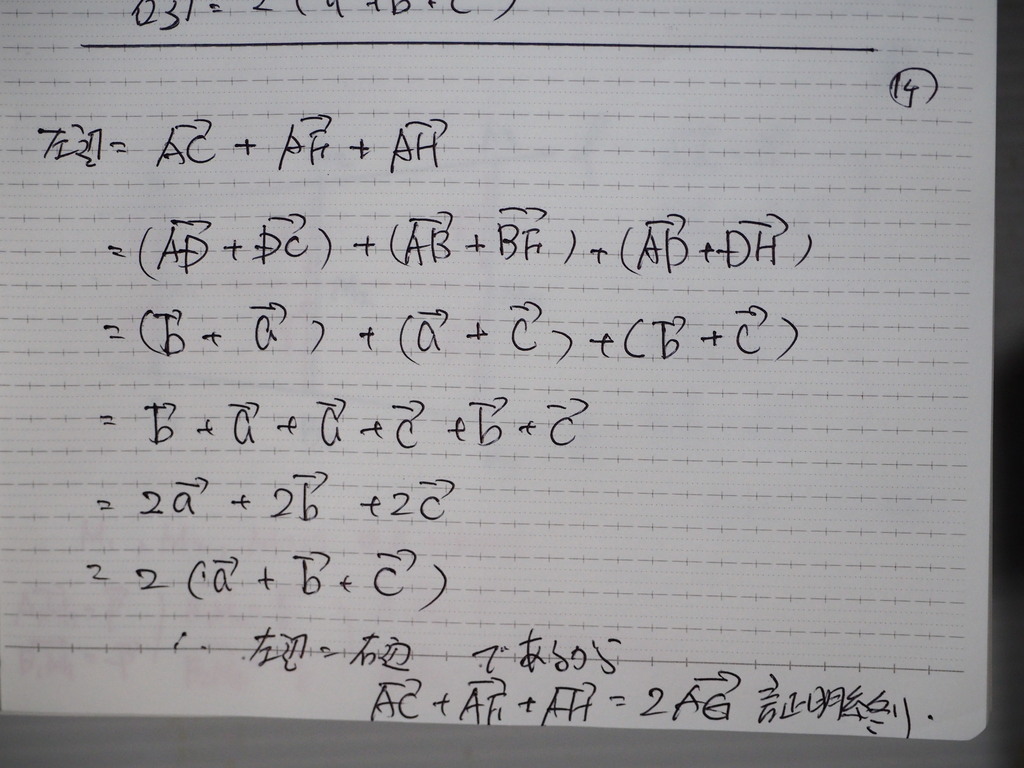 右辺 = 2(a⃗ + b⃗ + c⃗)
⑭
左辺 = AC⃗ + AF⃗ + AH⃗
= (AD⃗ + DC⃗) + (AB⃗ + BF⃗) + (AD⃗ + DH⃗)
= (b⃗ + a⃗) + (a⃗ + c⃗) + (b⃗ + c⃗)
= b⃗ + a⃗ + a⃗ + c⃗ + b⃗ + c⃗
= 2a⃗ + 2b⃗ + 2c⃗
= 2(a⃗ + b⃗ + c⃗)
∴ 左辺 = 右辺 であるから
AC⃗ + AF⃗ + AH⃗ = 2AG⃗ 証明終り.